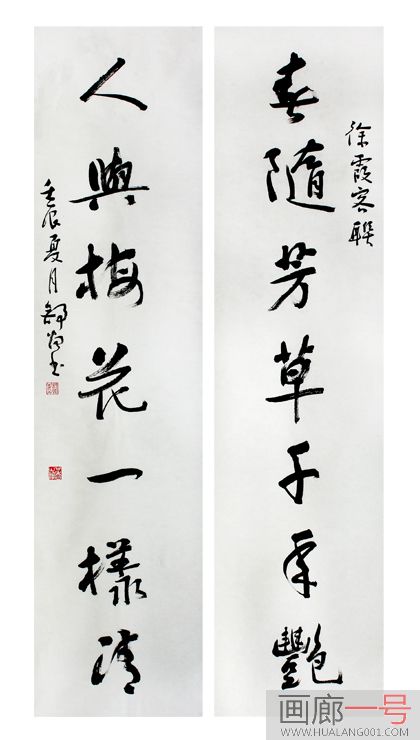 徐霞客聯
春隨芳草千年艷
人與梅花一樣清
壬辰夏月舒炯书
画廊一号
WWW.HUALANG001.COM